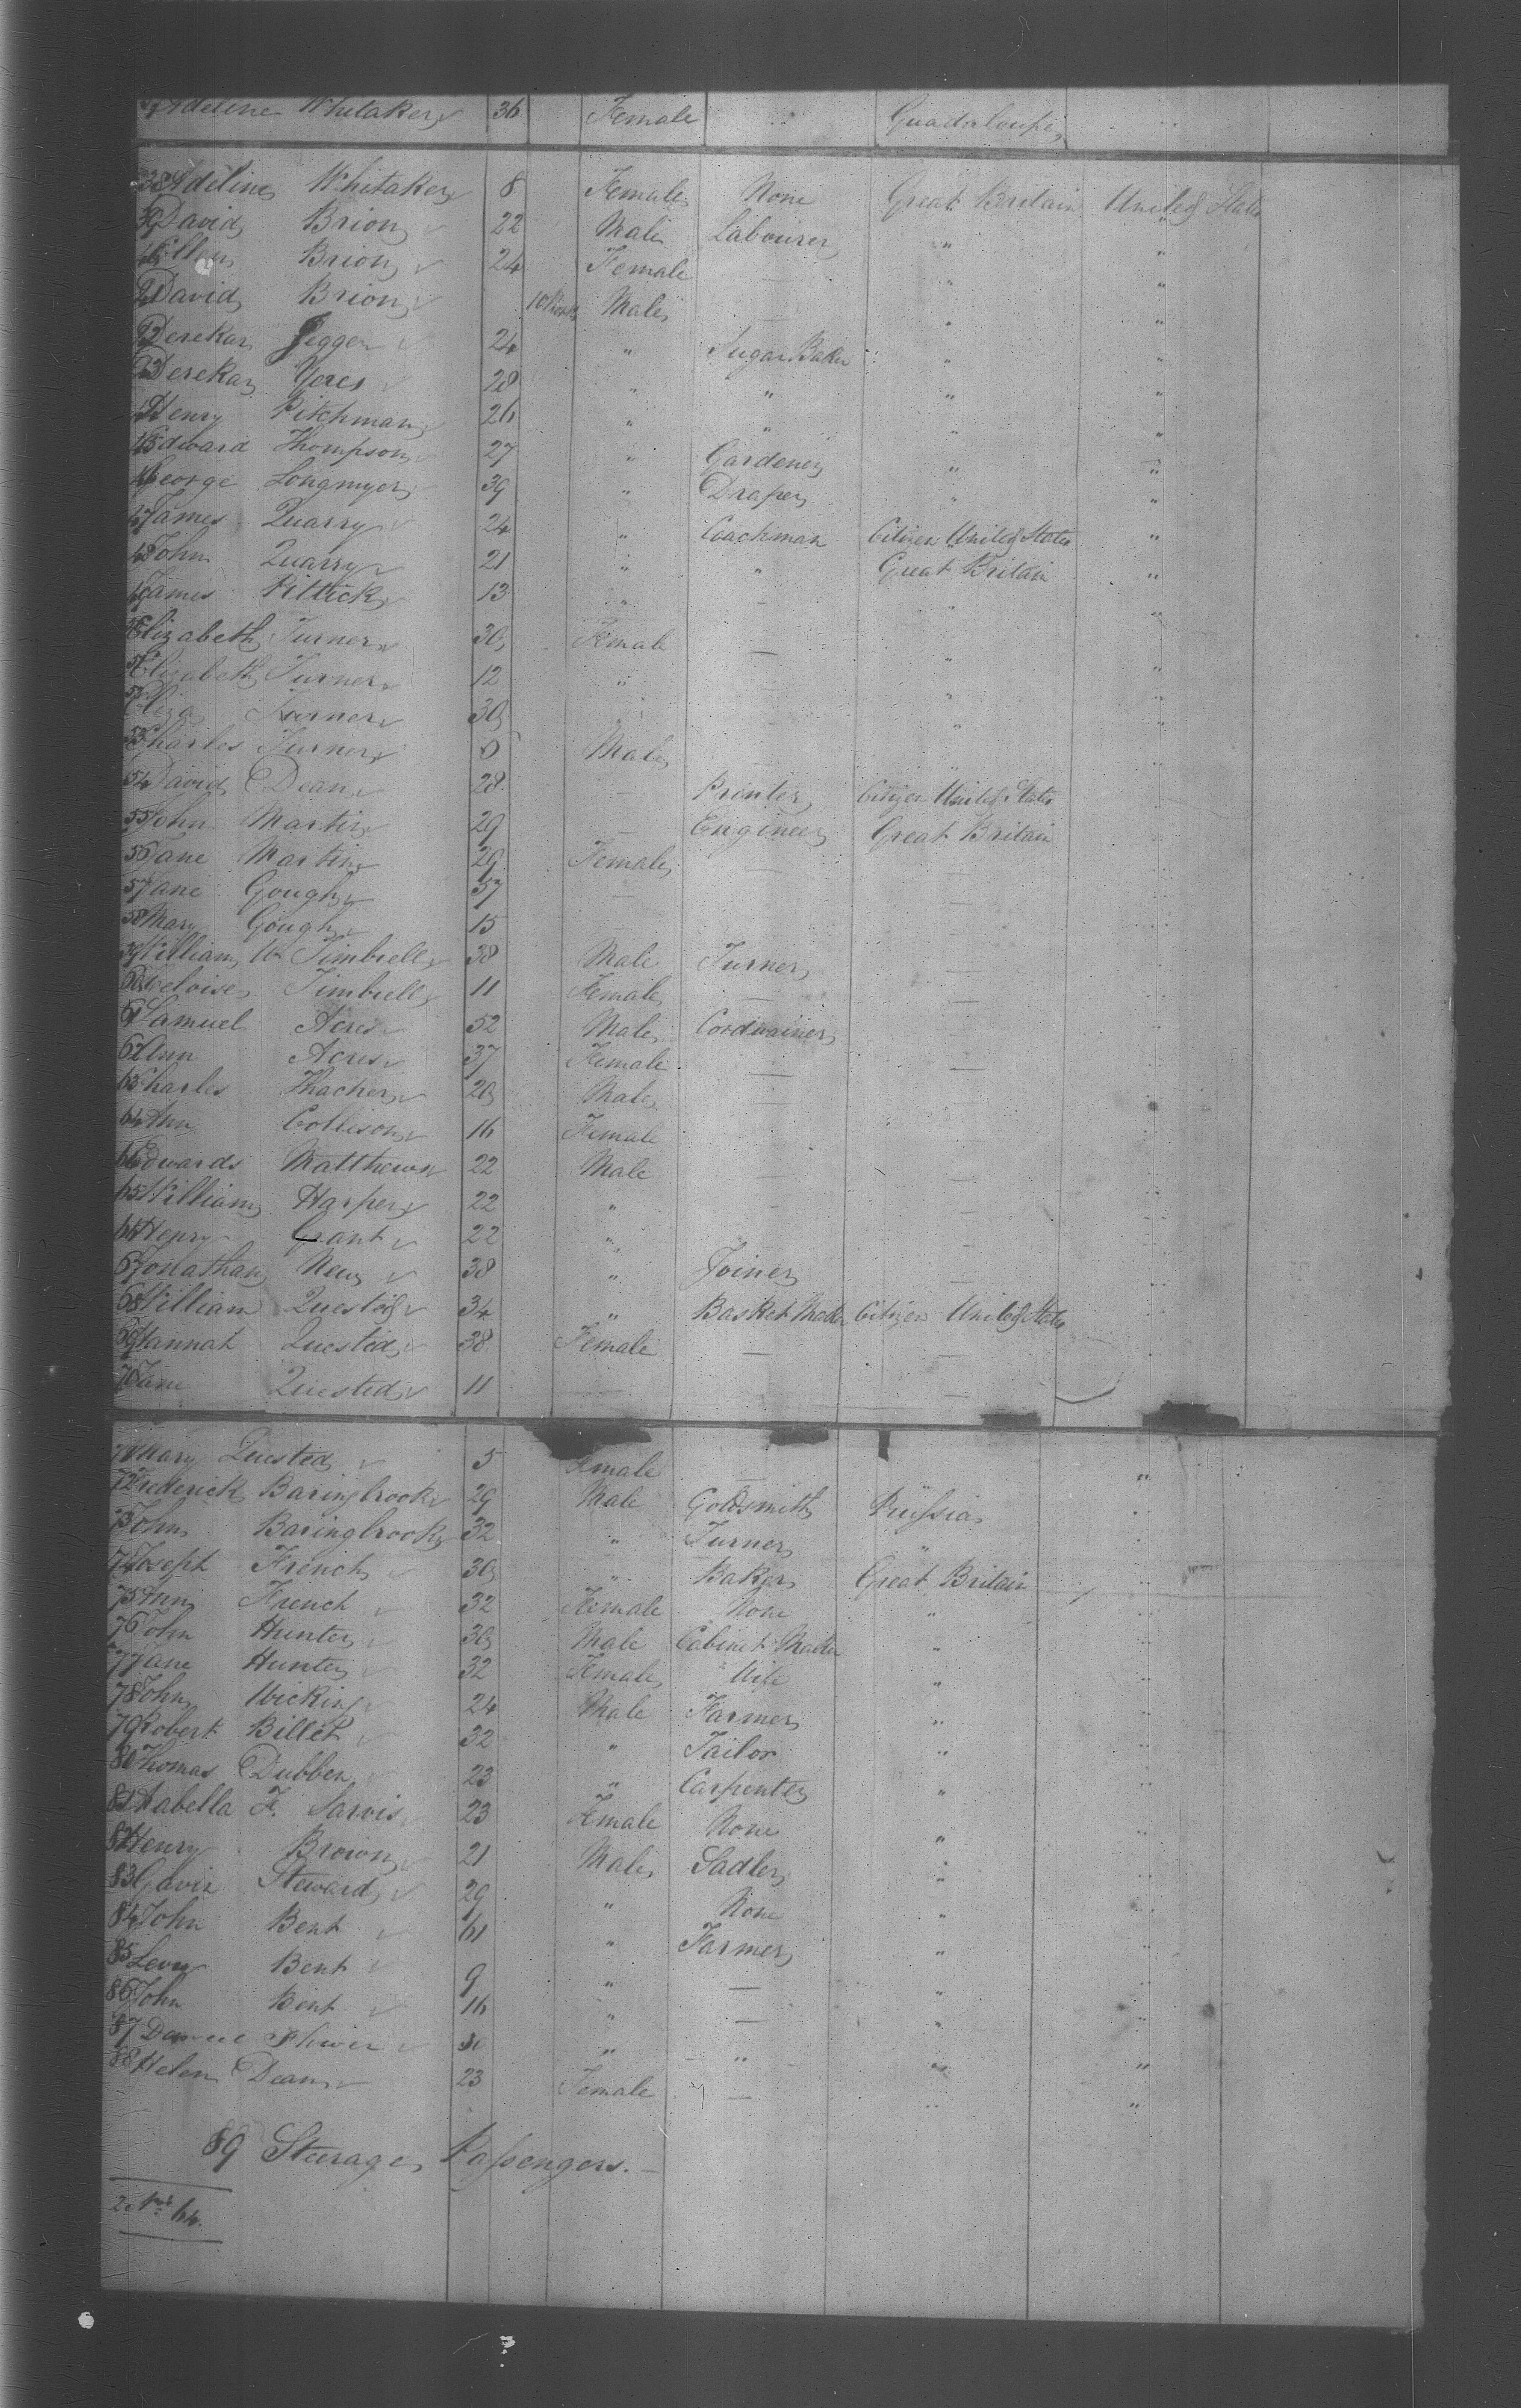 Adeline Whitaker 36 Female " Guadaloupe "
38 Adeline Whitaker 8 Female None Great Britain United States
39 David Brion 22 Male Labourer " "
Ellen Brion 24 Female — " "
41 David Brion 10 Months Male — " "
42 Derekar Jegger 24 " Sugar Baker " "
43 Derekar Yeres 28 " " " "
Henry Pitchman 26 " " " "
45 Edward Thompson 27 " Gardener " "
George Longmyer 39 " Draper " "
47 James Quarry 24 " Coachman Citizen United States "
48 John Quarry 21 " " Great Britain "
49 James Pittick 13 " - " "
Elizabeth Turner 30 Female — " "
51 Elizabeth Turner 12 " - " "
52 Eliza Turner 30 " "
53 Charles Turner Male - " "
54 David Dean 28 — Printer Citizen United States "
55 John Martin 29 — Engineer Great Britain "
56 Jane Martin 29 Female — — "
57 Jane Gough 57 — — "
58 Mary Gough 15 — "
59 William W Timbrell 38 Male Turner — "
60 Timbrell 11 Female — — "
61 Samuel Acres 52 Male Cordwainer — "
62 Ann Acres 37 Female — — "
63 Charles Thacher 20 Male — — "
64 Ann Collison 16 Female — — "
Edwards Matthews 22 Male — — "
65 William Harper 22 " - — "
66 Henry Grant 22 " — — "
67 Jonathan New 38 " Joiner — "
68 William Quested 34 " Basket Maker Citizen United States "
69 Hannah Quested 38 Female — — "
70 Jane Quested 11 — — —
71 Mary Quested 5 Female — "
72 Frederick Baringbrook 29 Male Goldsmith Russia "
73 John Baringbrook 32 " Turner " "
74 Joseph French 30 " Baker Great Britain "
75 Ann French 32 Female None " "
76 John Hunter 30 Male Cabinet Maker " "
77 Jane Hunter 32 Female Wife " "
78 John Wicking 24 Male Farmer " "
79 Robert Billet 32 " Tailor " "
80 Thomas Dubben 23 " Carpenter " "
81 Isabella F. Sarvis 23 Female None " "
82 Henry Brown 21 Male Sadler " "
83 Gavin Steward 29 " None " "
84 John Bent 61 " Farmer " "
85 Levy Bent 9 " — " "
86 John Bent 16 " — " "
87 " " " "
88 Helen Dean 23 Female — " "
89 Steerage Passengers. —